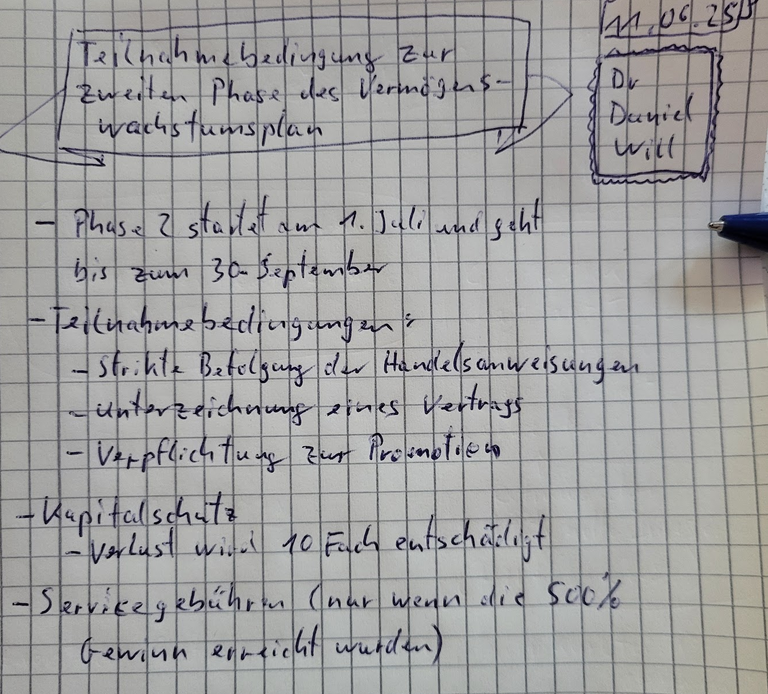 11.06.25
Teilnahmebedingung zur
zweiten Phase des Vermögens-
wachstumsplan
Dr
Daniel
Will
- Phase 2 startet am 1. Juli und geht
bis zum 30. September
- Teilnahmebedingungen:
- Strikte Befolgung der Handelsanweisungen
- Unterzeichnung eines Vertrags
- Verpflichtung zur Promotion
- Kapitalschutz
- Verlust wird 10 Fach entschädigt
- Servicegebühren (nur wenn die 500%
Gewinn erreicht wurden)